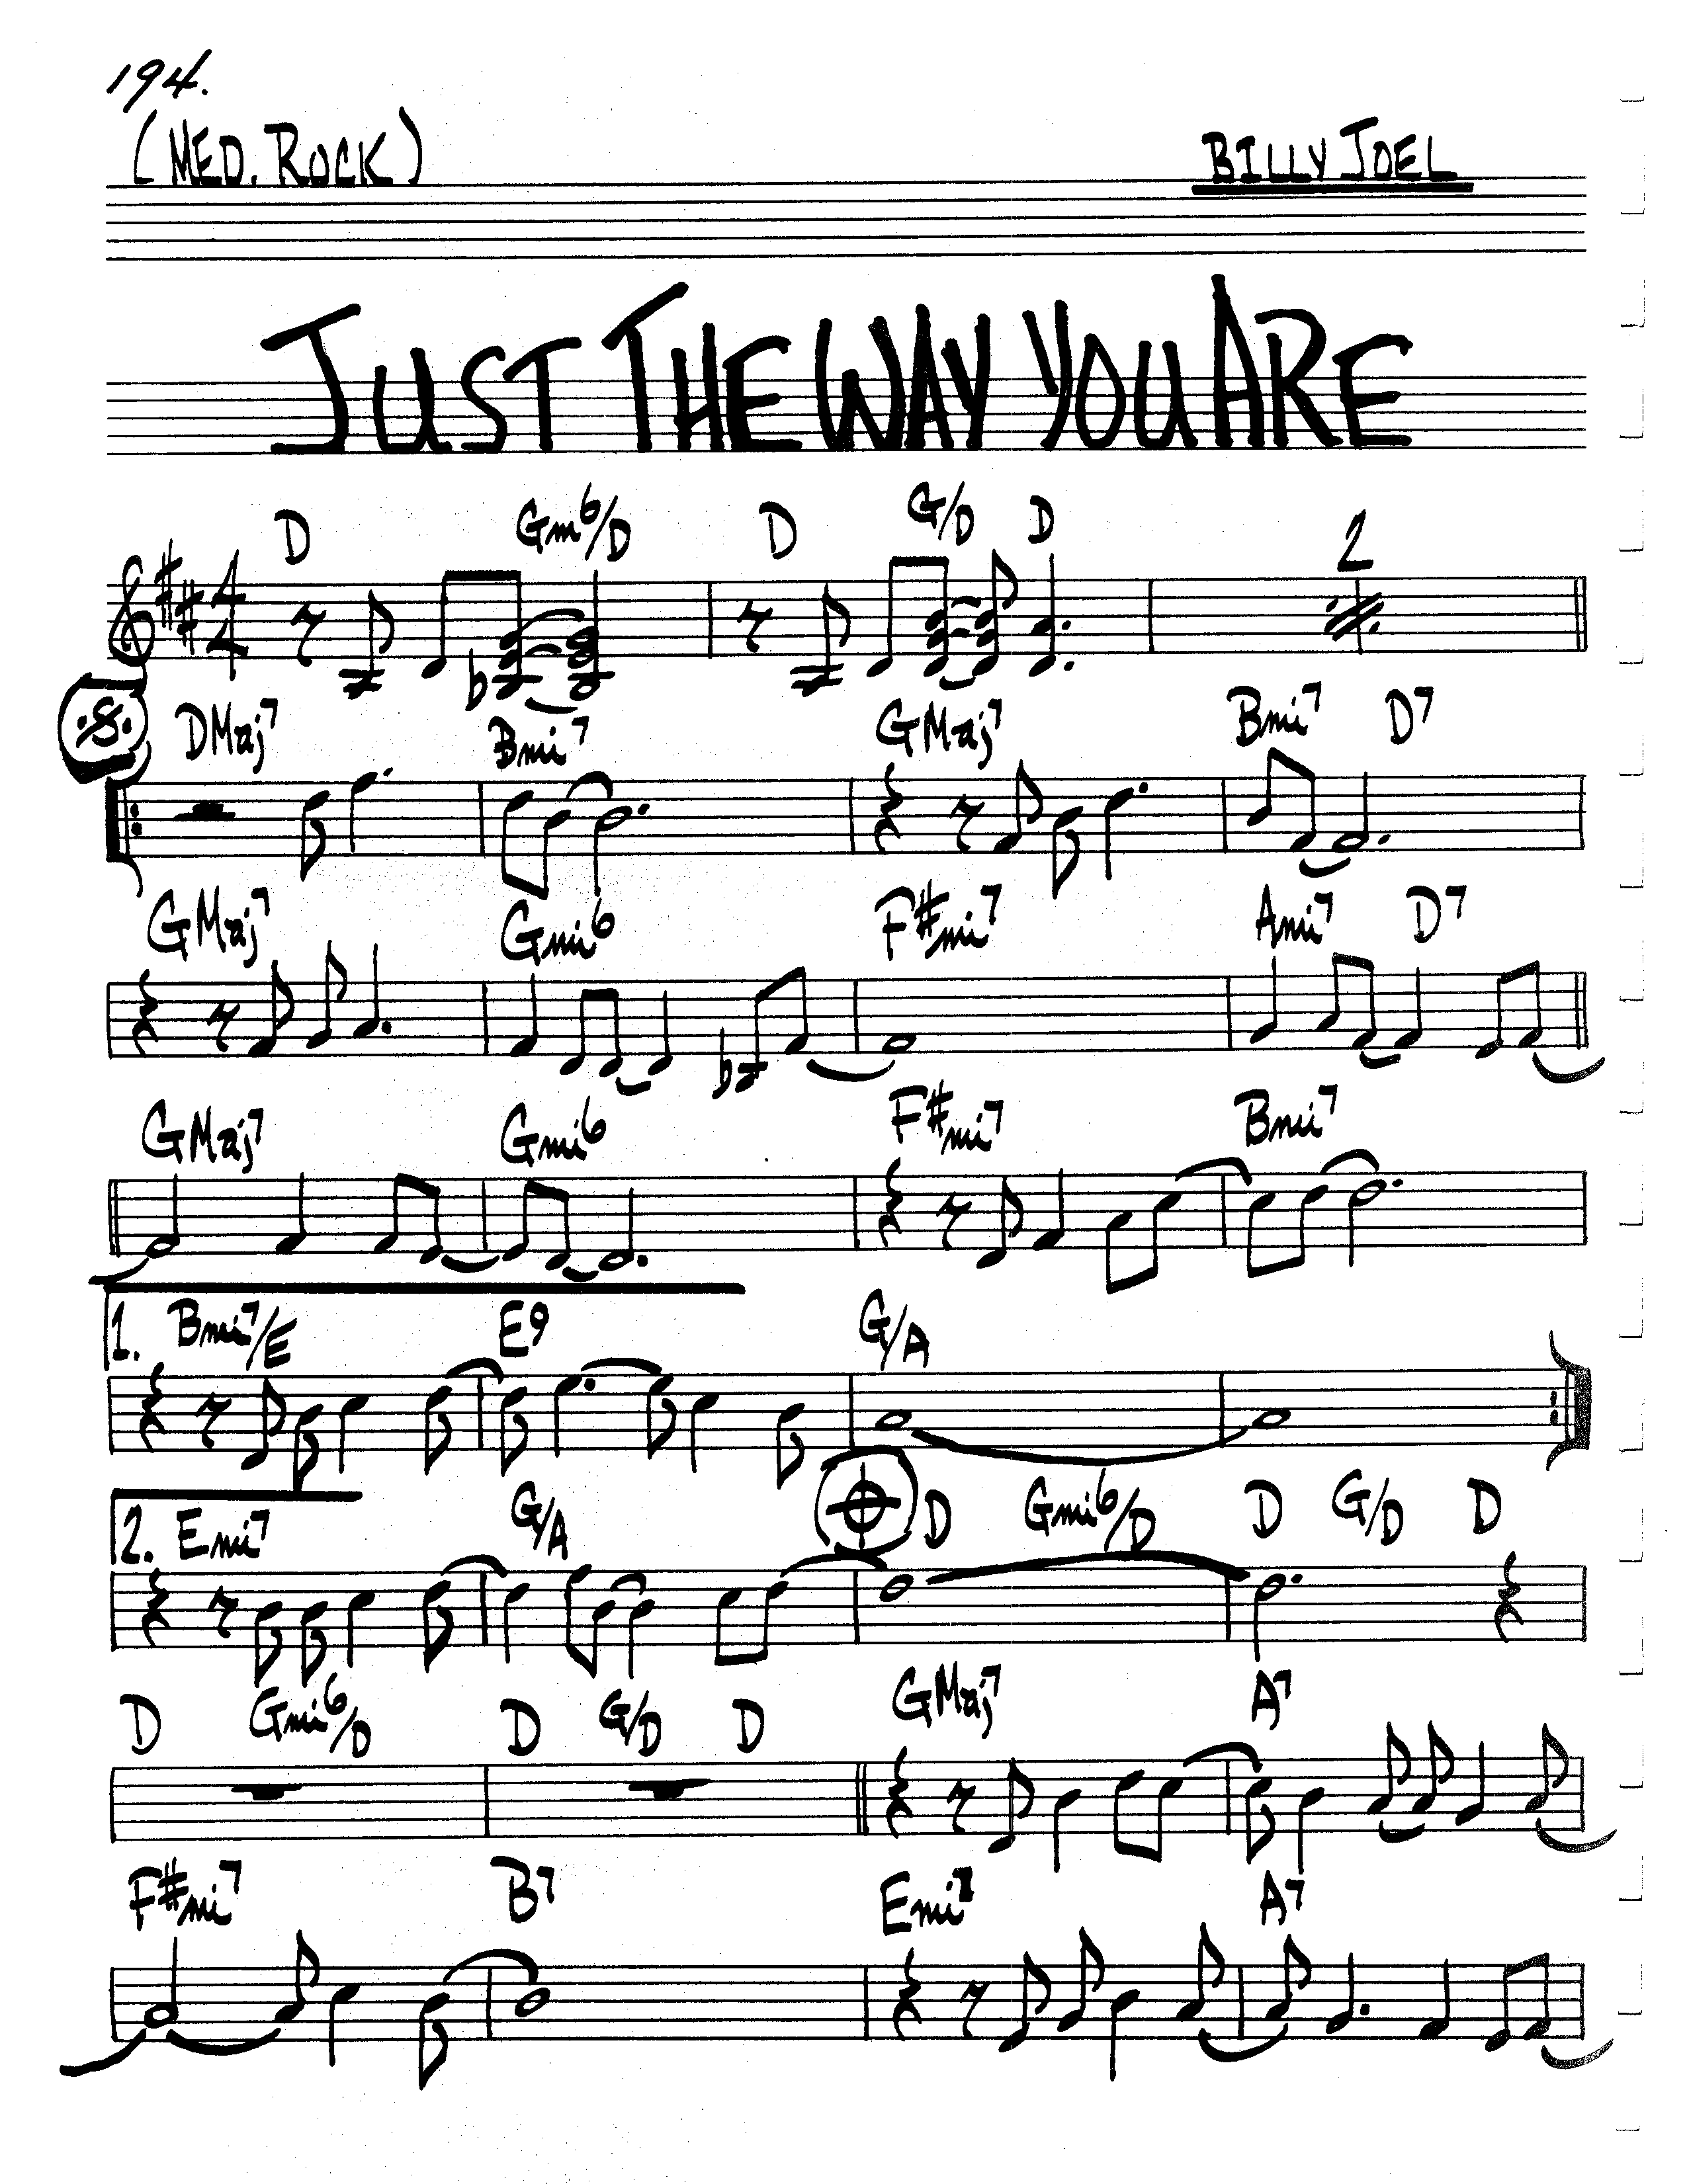 194.
(MED. ROCK) BILLY JOEL
JUST THE WAY YOU ARE
D Gm6/D D G/D D 2
4
4
DMaj7 Bmi7 GMaj7 Bmi7 D7
GMaj7 Gmi6 F#mi7 Ami7 D7
GMaj7 Gmi6 F#mi7 Bmi7
1. Bmi7/E E9 G/A
2. Emi7 G/A D Gmi6/D D G/D D
D Gmi6/D D G/D D GMaj7 A7
F#mi7 B7 Emi7 A7